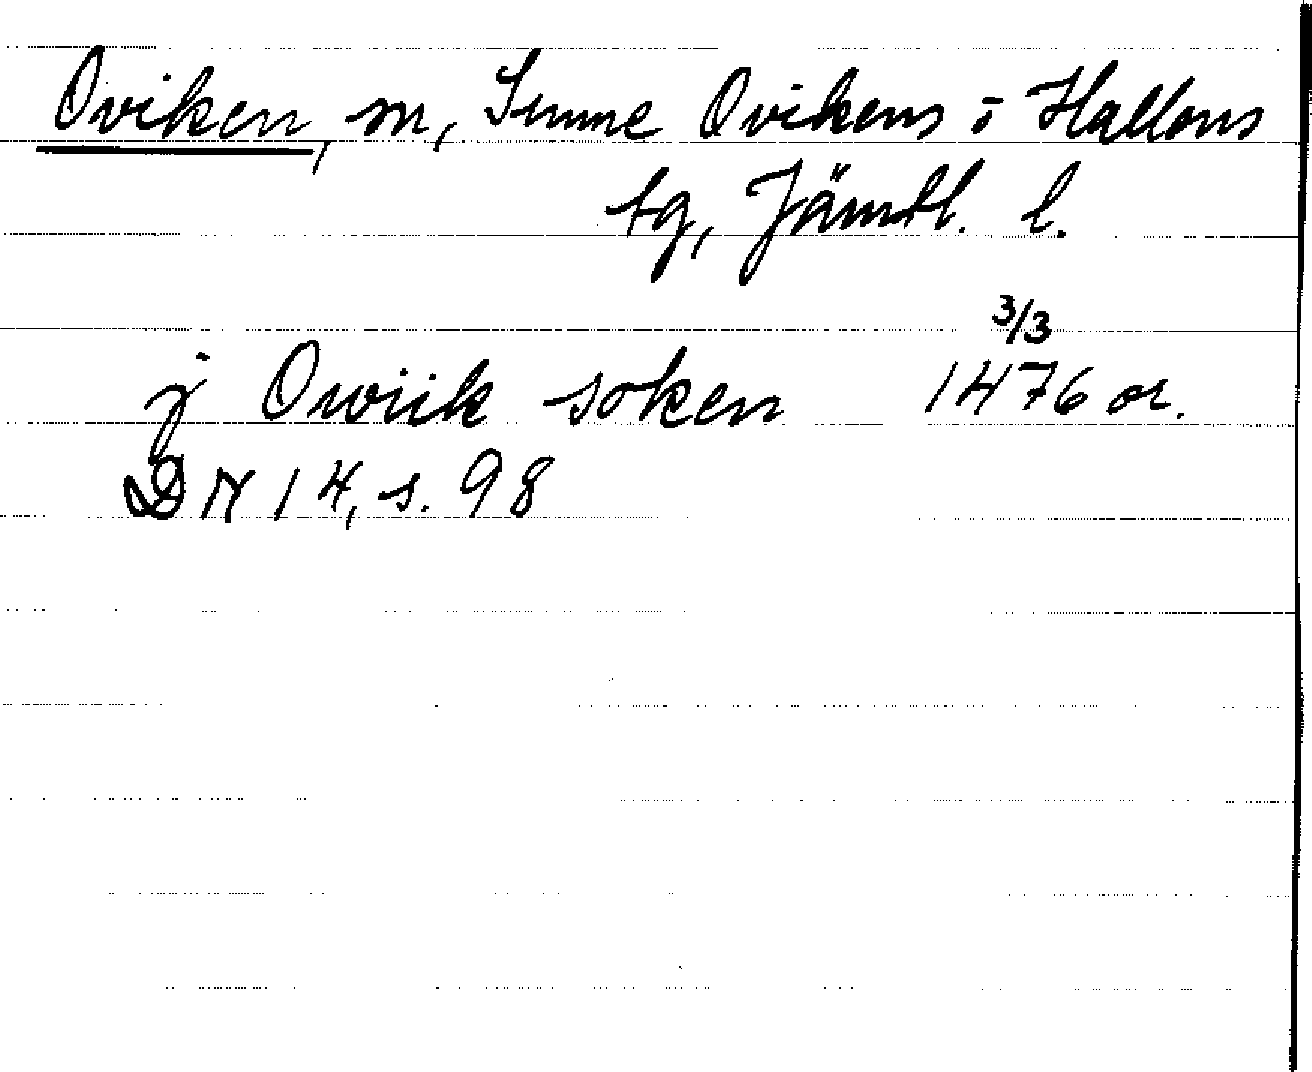 Oviken, sn, Sunne Ovikens o Hallens
tg, Jämtl. l.
3/3
j Owiik soken 1476 or.
DN 14, s. 98